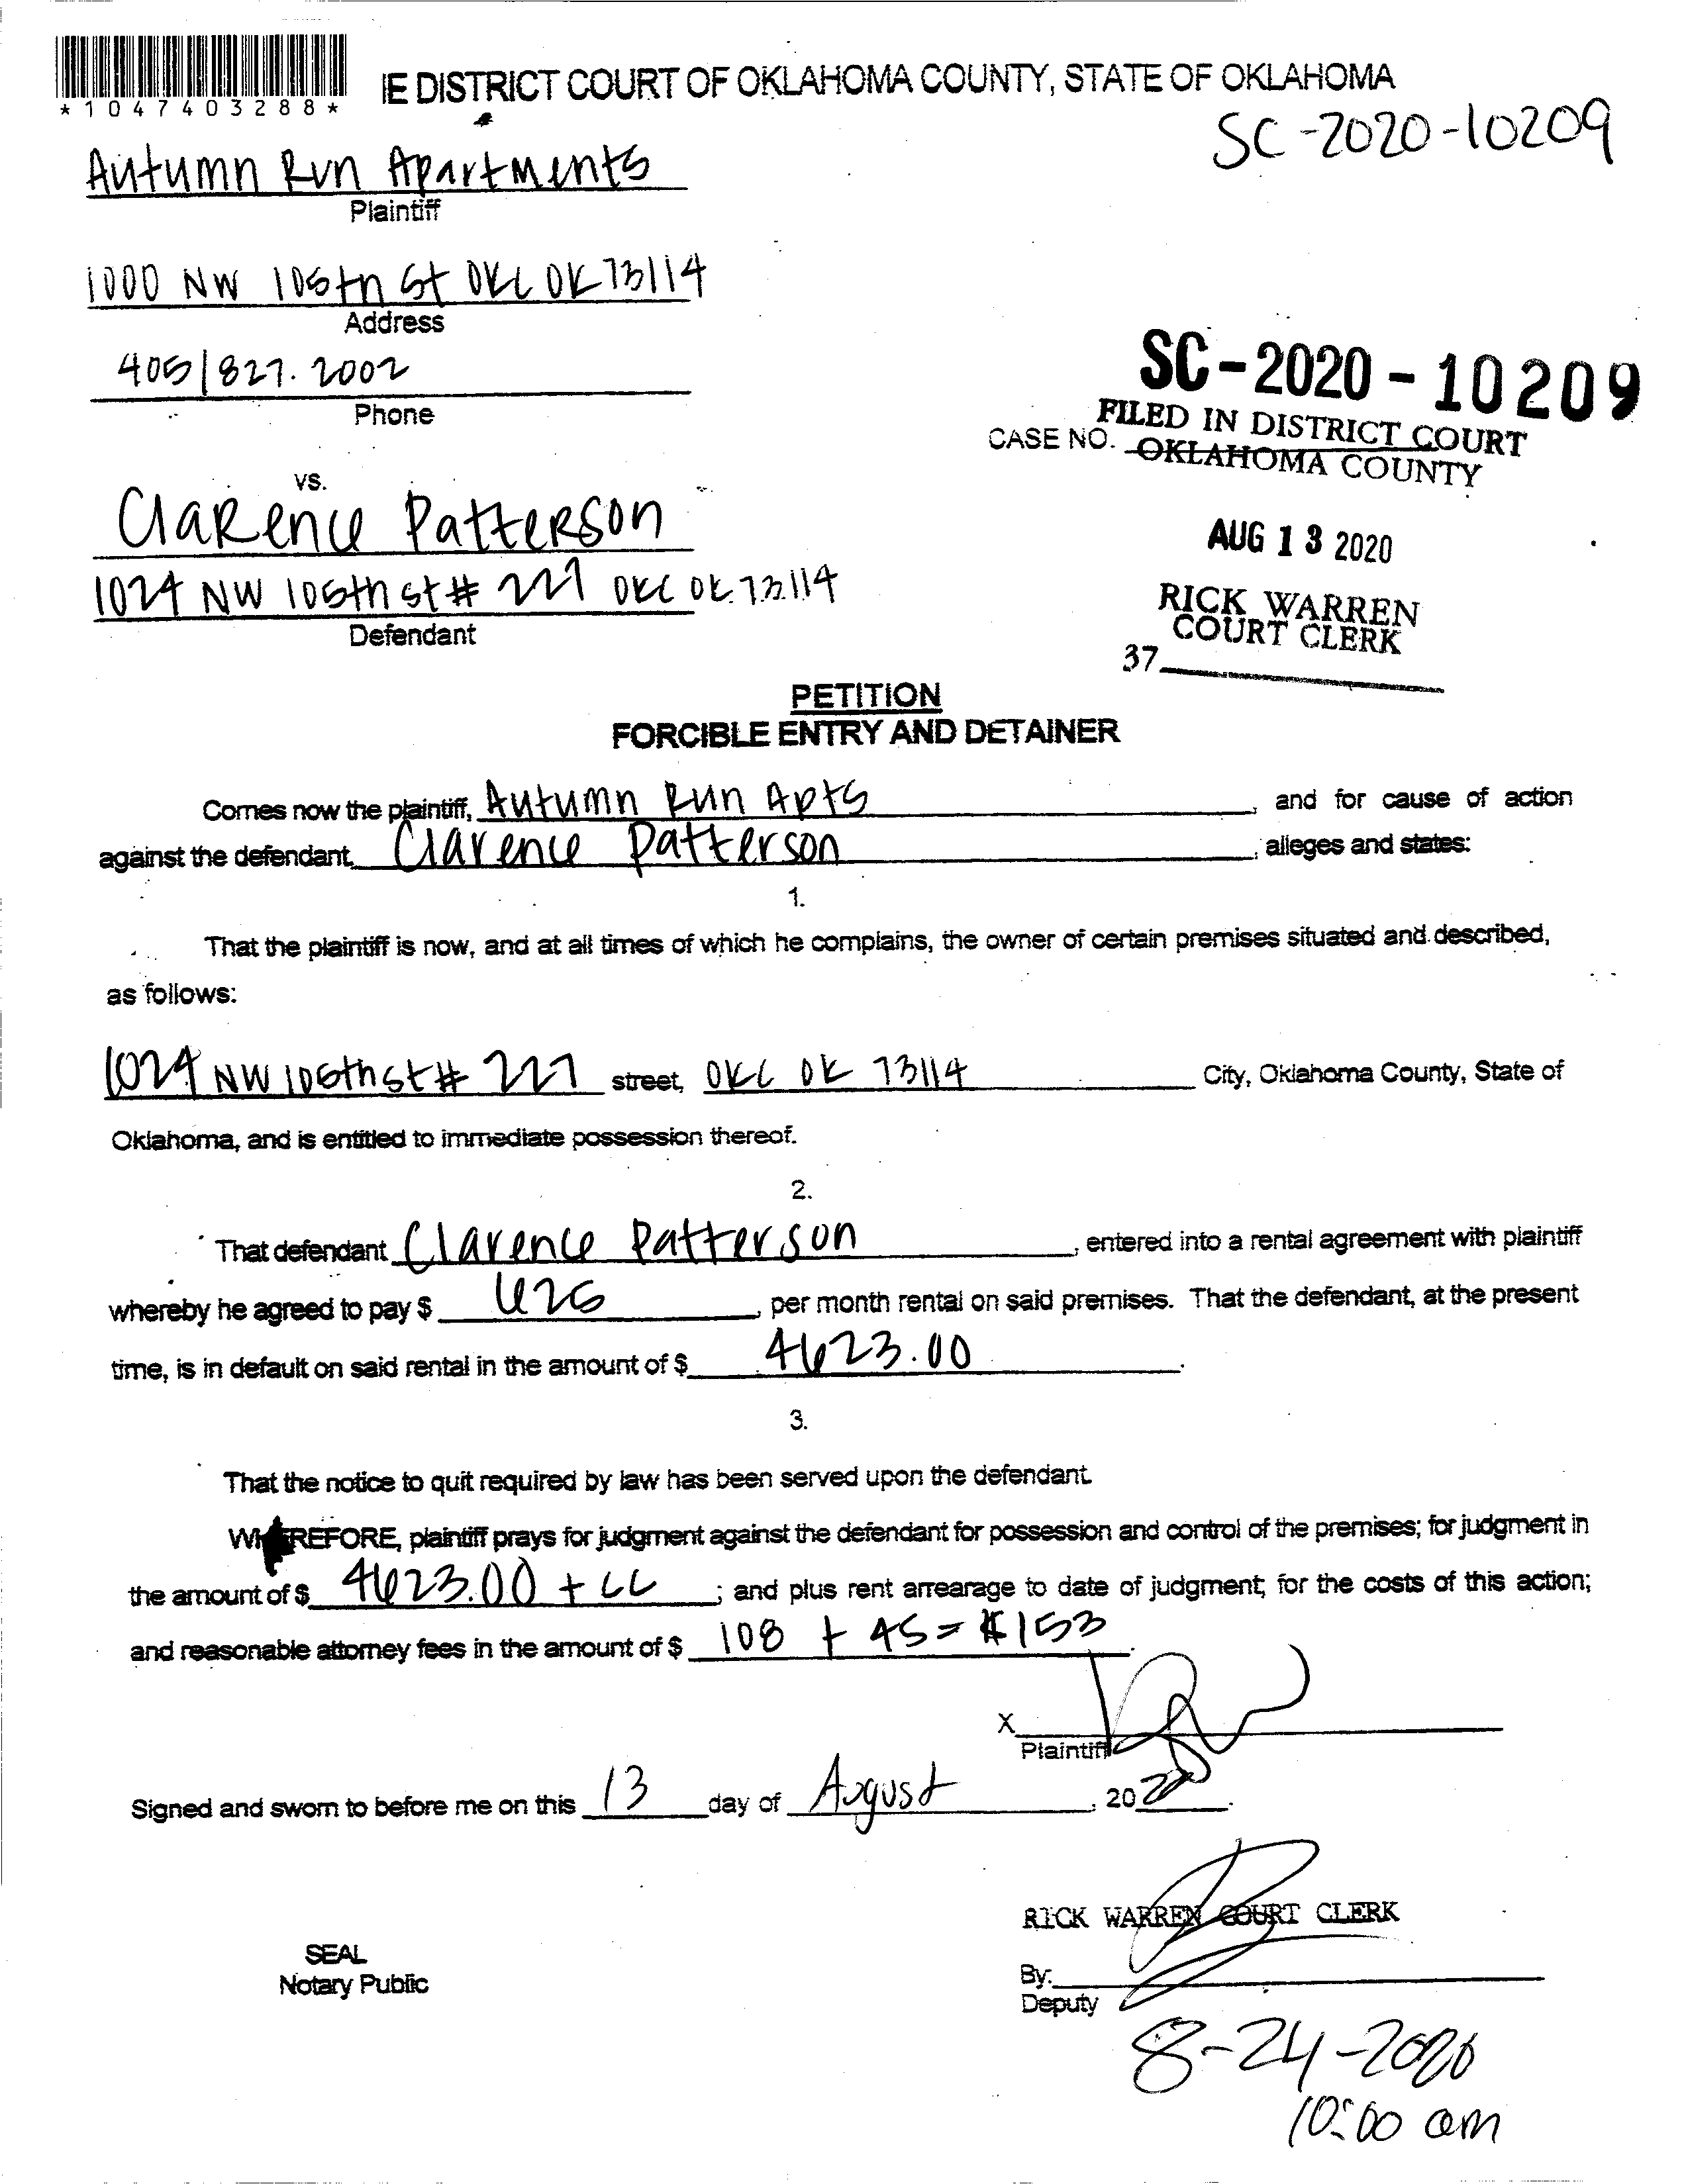 *1047403288*
IE DISTRICT COURT OF OKLAHOMA COUNTY, STATE OF OKLAHOMA
SC-2020-10209
Autumn Run Apartments
Plaintiff
1000 NW 105th St OKC OK 73114
Address
405|827.2002
Phone
SC-2020-10209
FILED IN DISTRICT COURT
CASE NO. OKLAHOMA COUNTY
vs.
Clarence Patterson
AUG 13 2020
1024 NW 105th st # 227 OKC OK 73114
Defendant
RICK WARREN
COURT CLERK
37
PETITION
FORCIBLE ENTRY AND DETAINER
Comes now the plaintiff, Autumn Run Apts, and for cause of action
against the defendant, Clarence Patterson, alleges and states:
1.
That the plaintiff is now, and at all times of which he complains, the owner of certain premises situated and described,
as follows:
1024 NW 106th st # 227 street, OKC OK 73114 City, Oklahoma County, State of
Oklahoma, and is entitled to immediate possession thereof.
2.
That defendant Clarence Patterson, entered into a rental agreement with plaintiff
whereby he agreed to pay $ , per month rental on said premises. That the defendant, at the present
time, is in default on said rental in the amount of $ 4623.00.
3.
That the notice to quit required by law has been served upon the defendant.
WHEREFORE, plaintiff prays for judgment against the defendant for possession and control of the premises; for judgment in
the amount of $ 4623.00 + CC; and plus rent arrearage to date of judgment; for the costs of this action;
and reasonable attorney fees in the amount of $ 108 + 45 = $153.
X
Plaintiff
Signed and sworn to before me on this 13 day of August, 2020.
RICK WARREN COURT CLERK
SEAL
Notary Public
By:
Deputy
8-24-2020
10:00 am